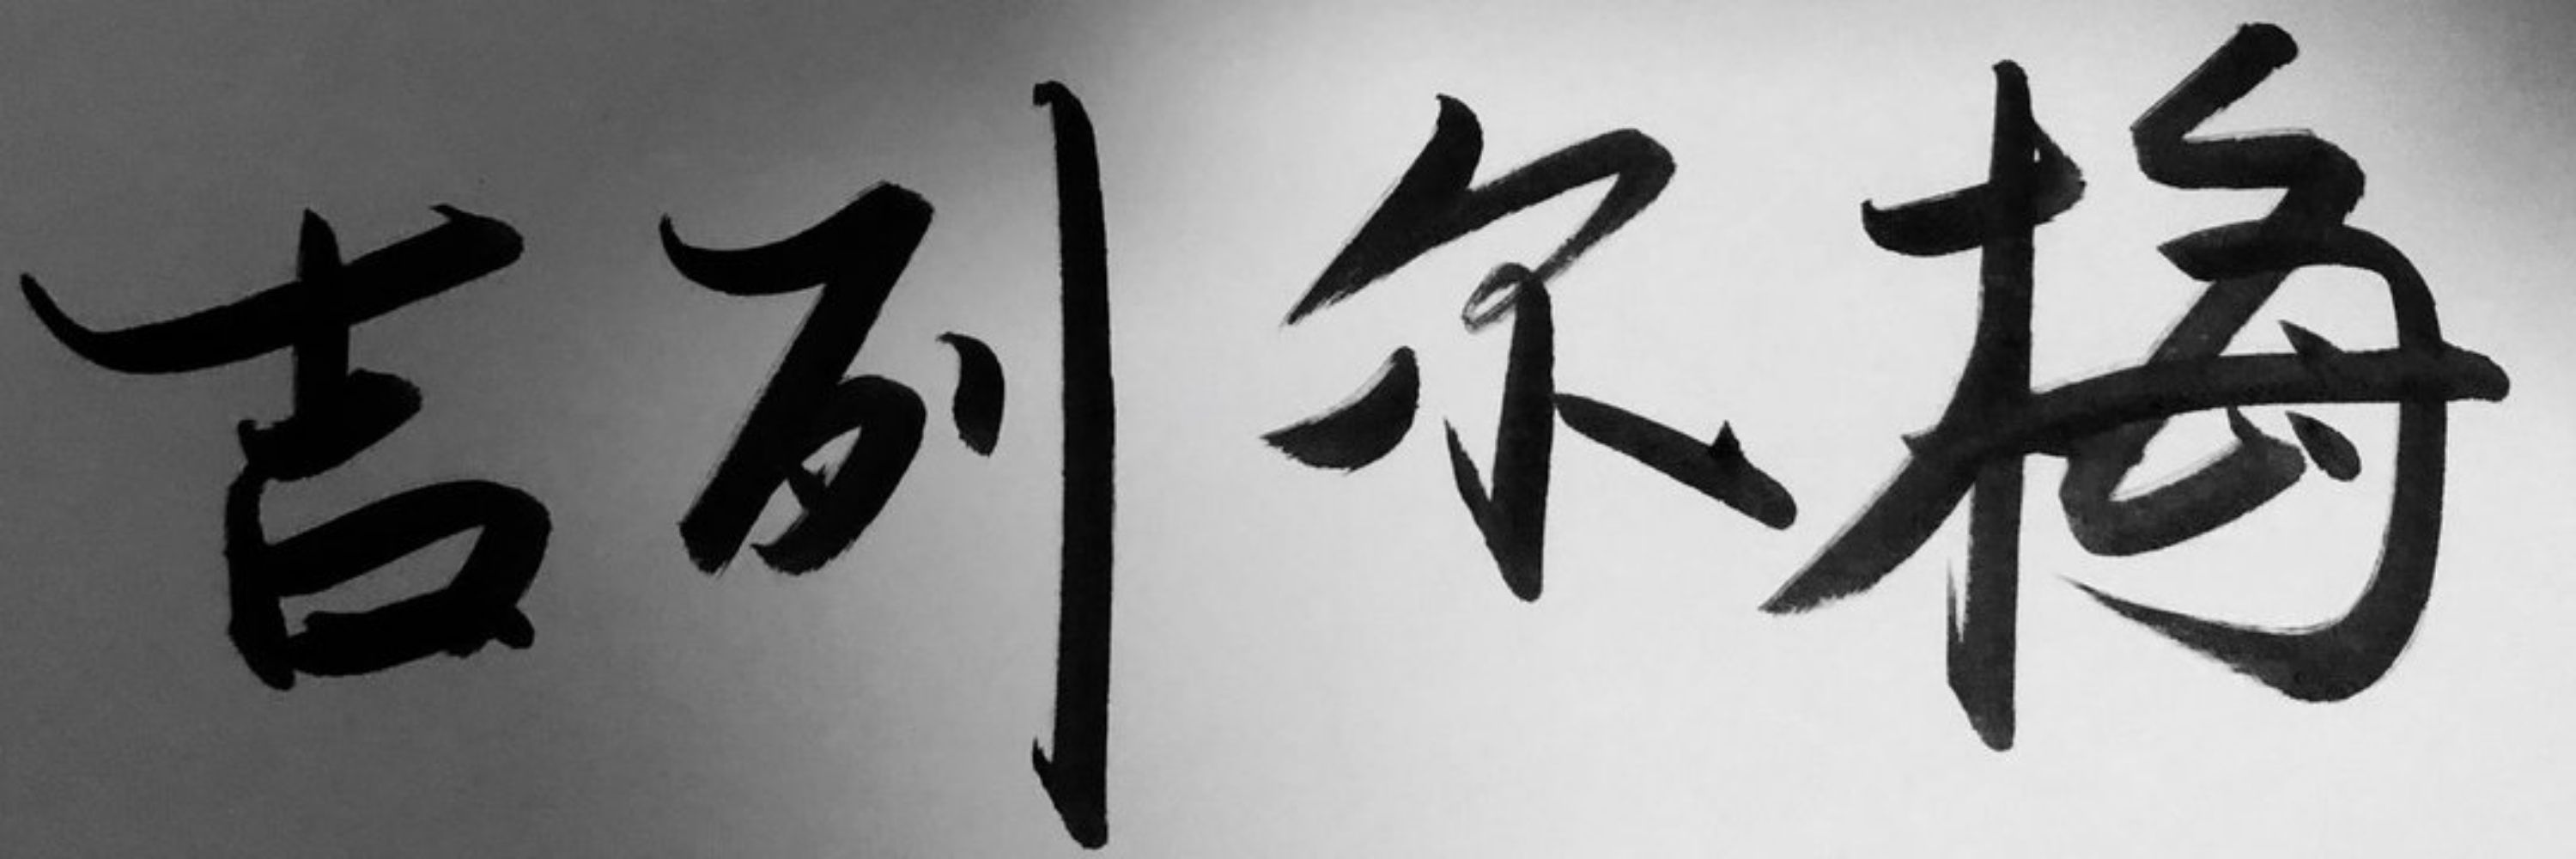 吉列尔梅